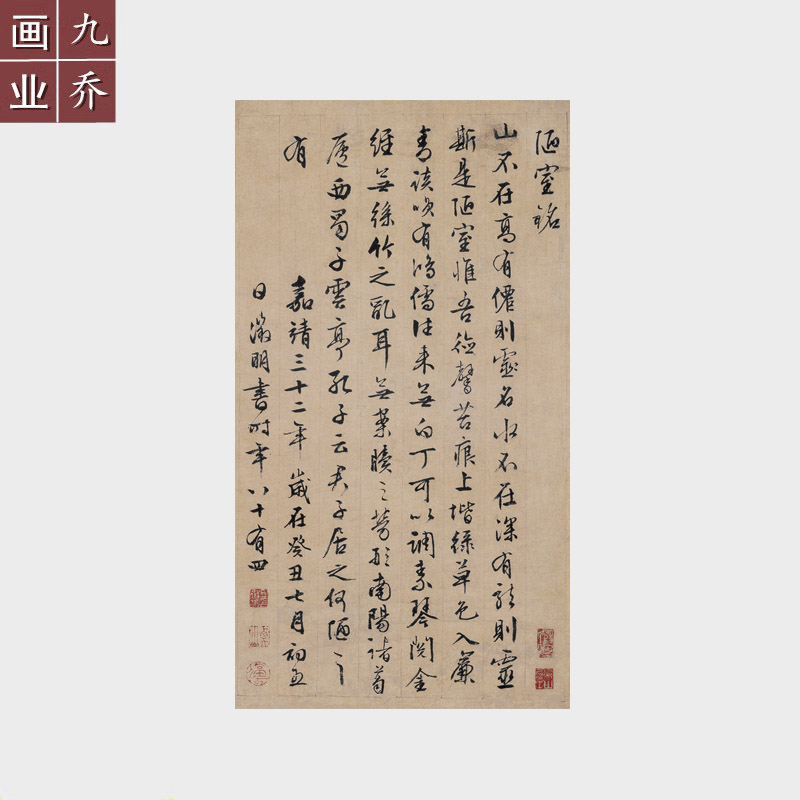 九乔
画业
陋室銘
山不在高有僊則靈名水不在深有龍則靈
斯是陋室惟吾德馨苔痕上堦綠草色入簾
青談咲有鴻儒往来無白丁可以調素琴閱金
經無絲竹之亂耳無案牘之勞形南陽諸葛
廬西蜀子雲亭孔子云君子居之何陋之
有　嘉靖三十二年歲在癸丑七月初五
日徵明書時年八十有四